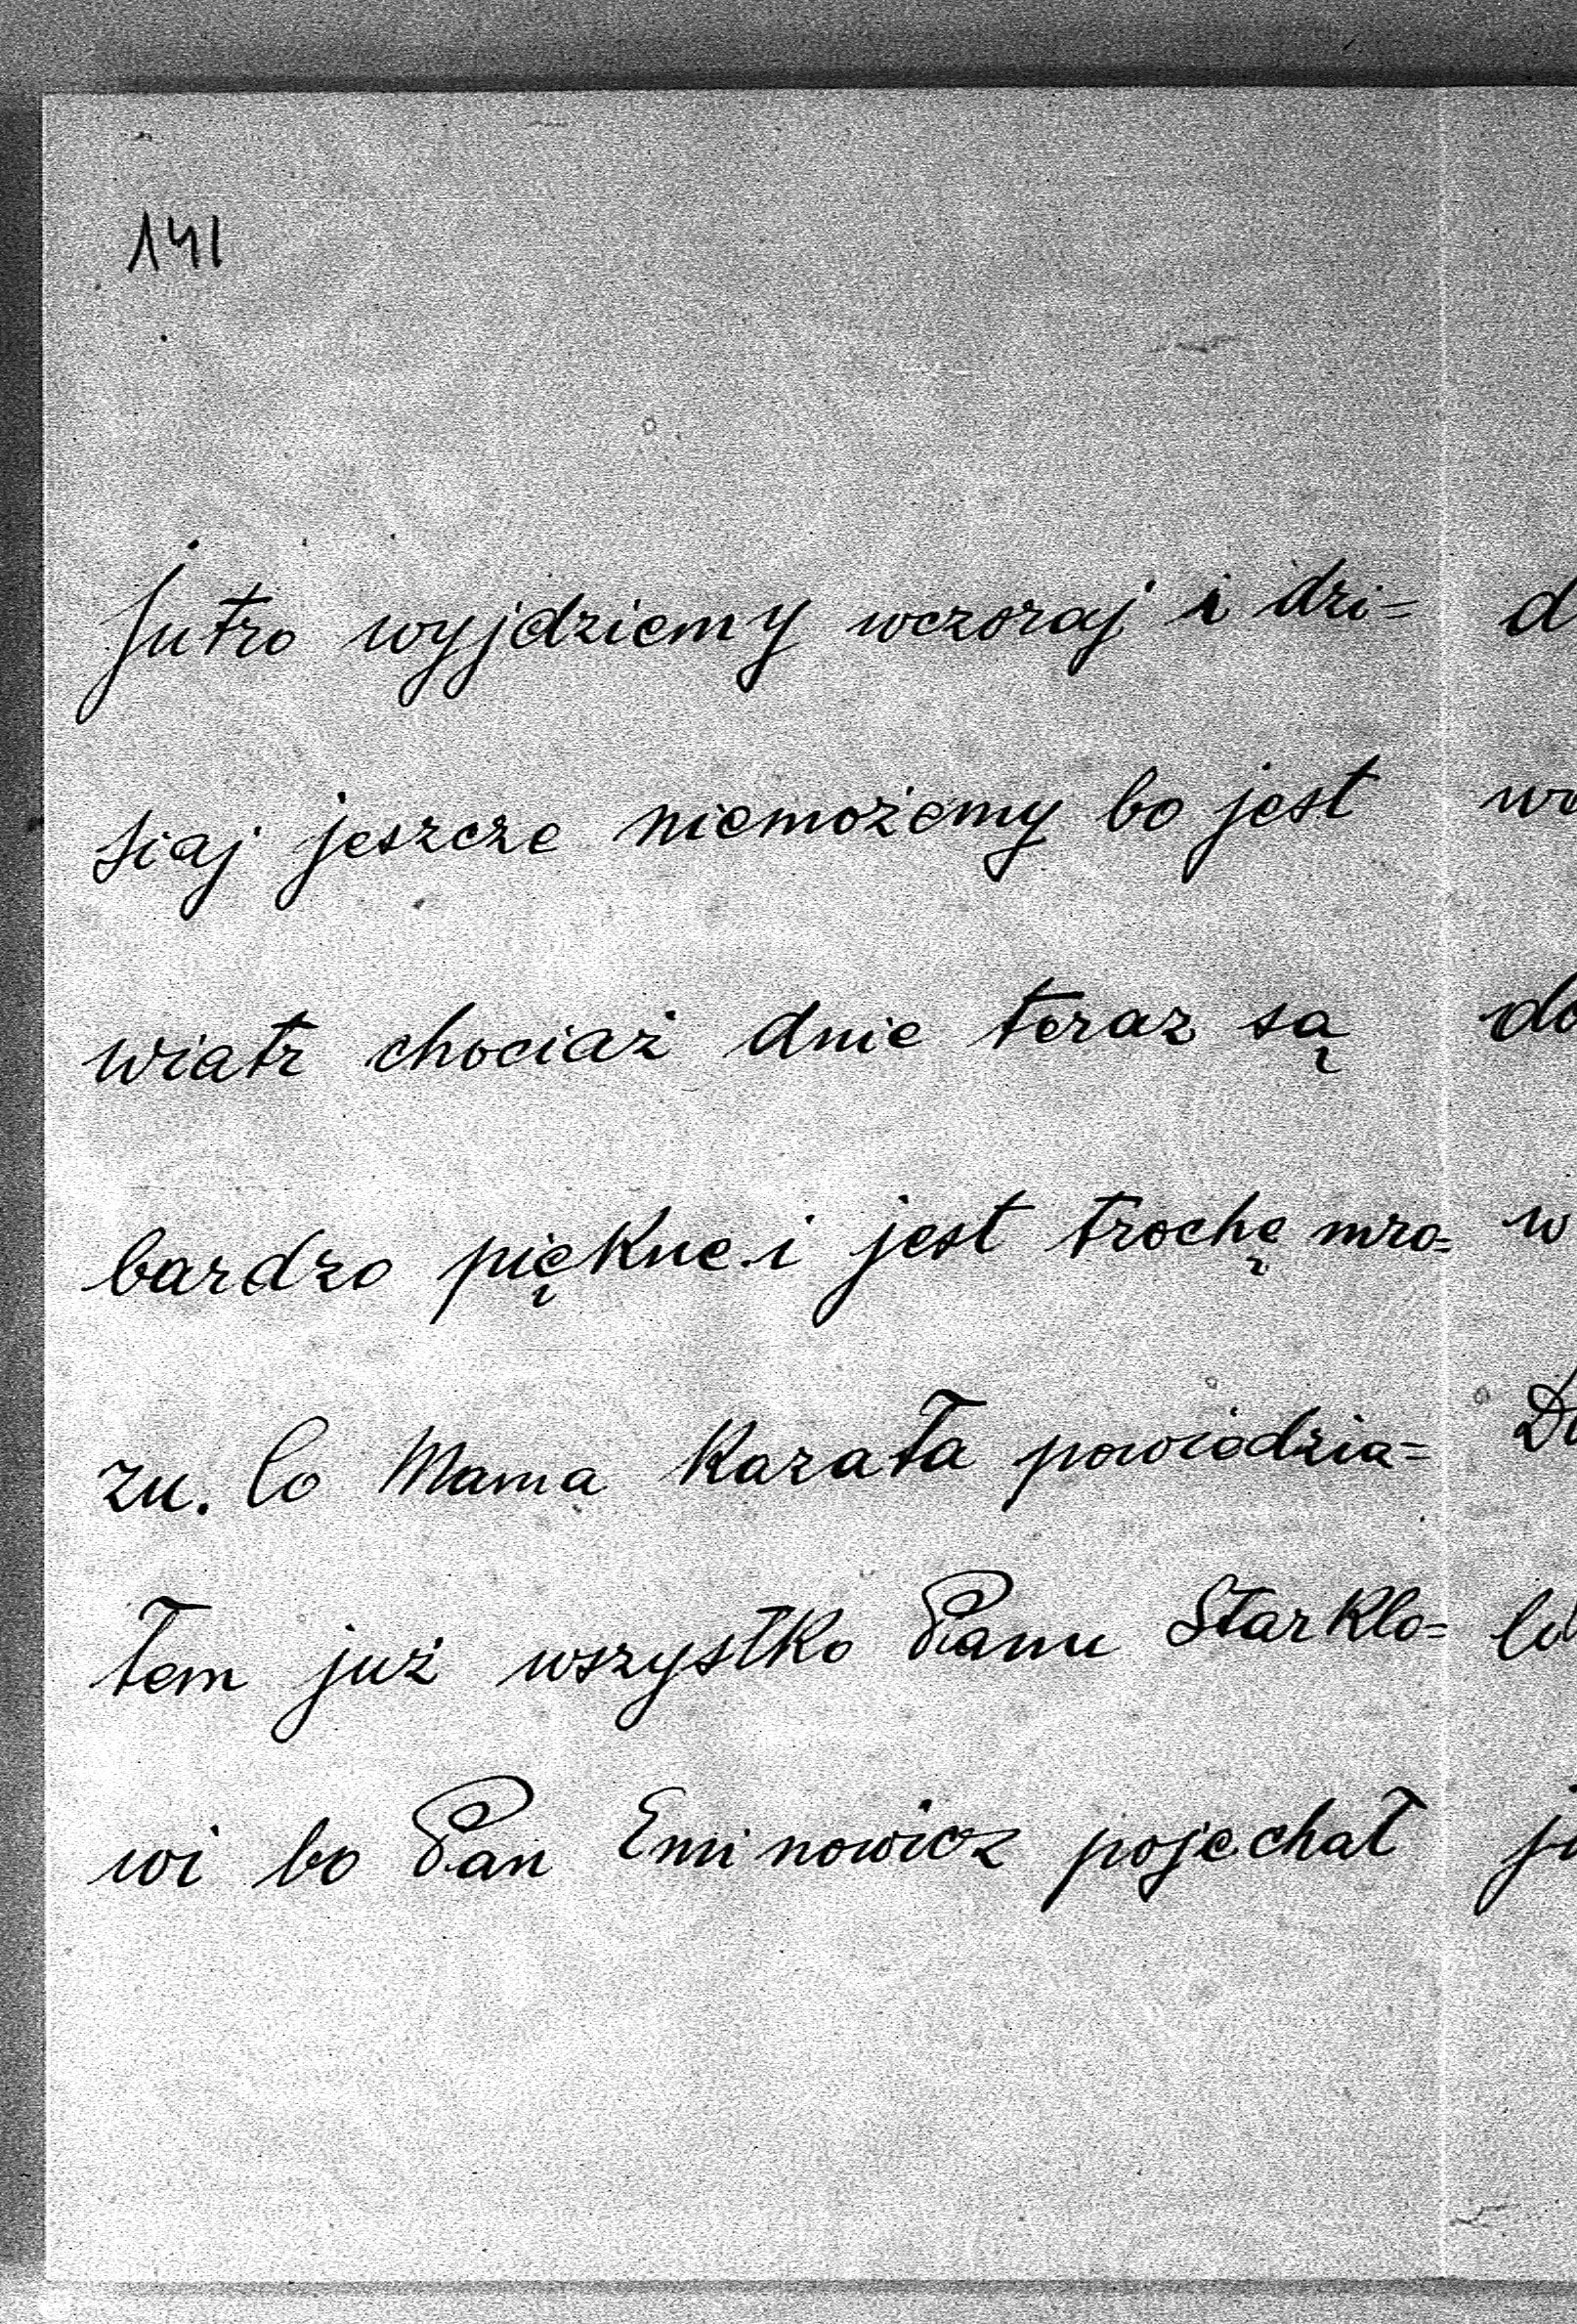 141
Jutro wyjdziemy wczoraj i dzi=
siaj jeszcze niemożemy bo jest
wiatr chociaż dnie teraz są
bardzo piękne i jest trochę mro=
zu. Co Mama kazała powiedzia=
łem już wszystko Panu Starklo=
wi bo Pan Eminowicz pojechał